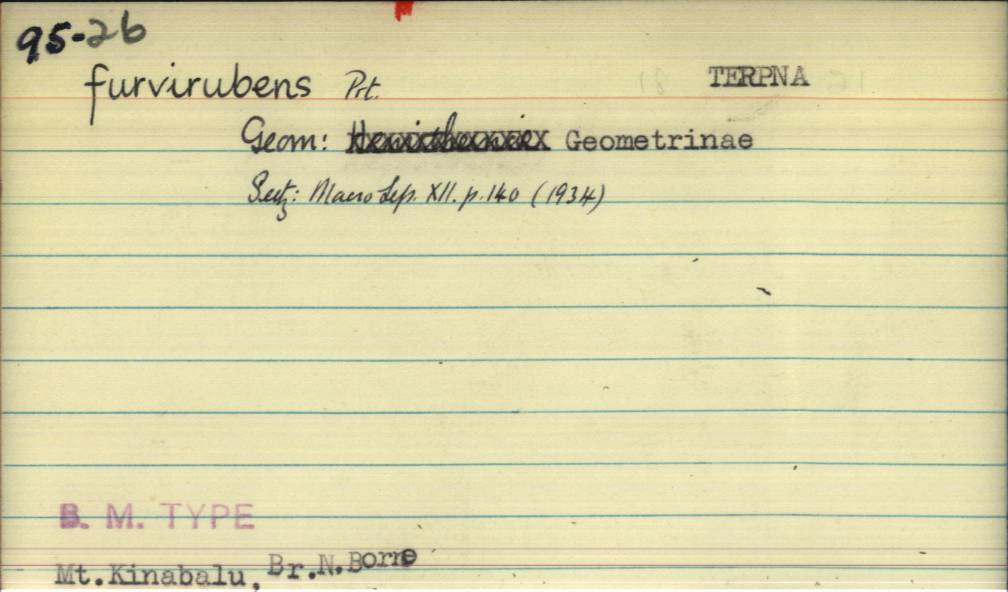 95-26
furvirubens Prt. TERPNA
Geom: Geometrinae
Seitz: Macro Lep. XII. p. 140 (1934)
B. M. TYPE
Mt.Kinabalu, Br.N.Borne